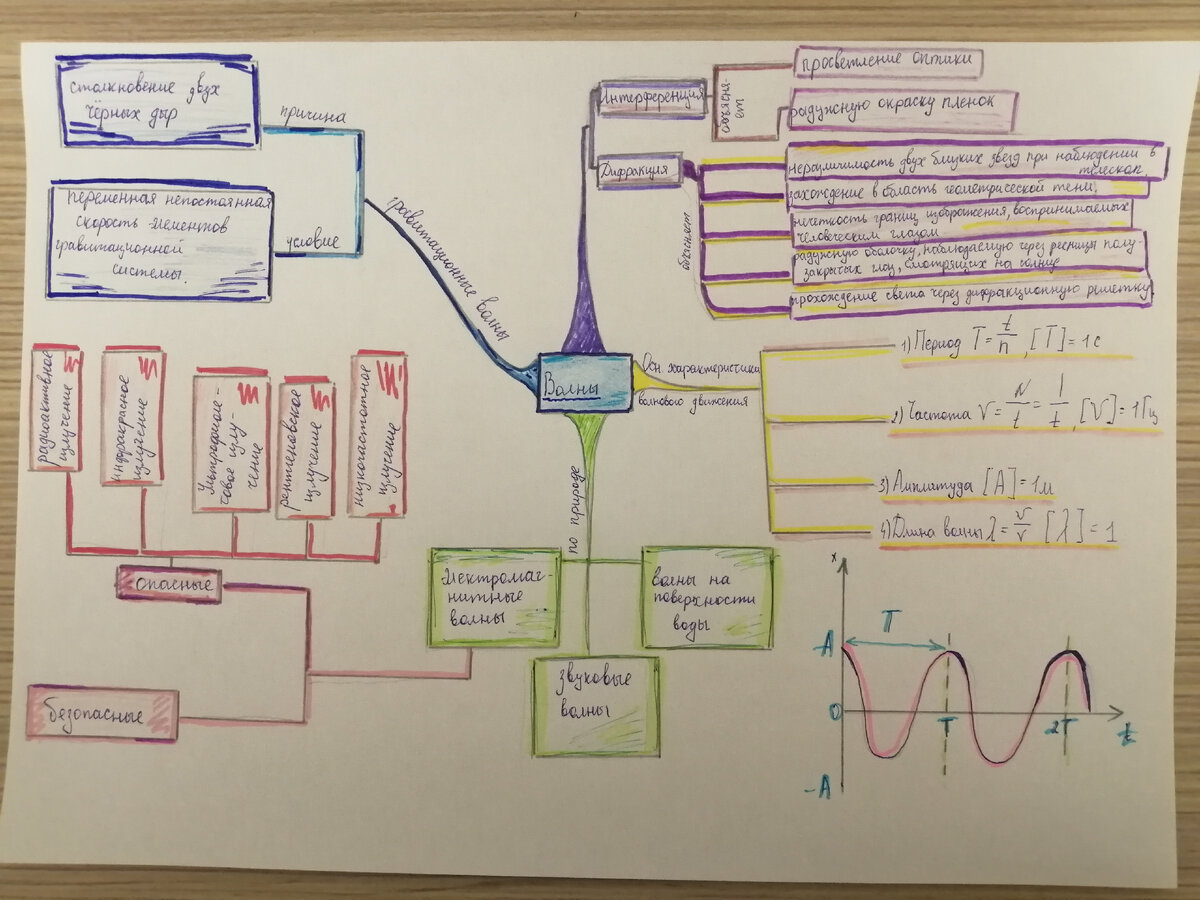 столкновение двух
чёрных дыр
причина
переменная непостоянная
скорость элементов
гравитационной
системы.
условие
гравитационные волны
Волны
Интерференция
объясня-
ет
просветление оптики
радужную окраску пленок
Дифракция
объясняет
неразличимость двух близких звезд при наблюдении в
телескоп,
захождение в область геометрической тени,
нечеткость границ изображения, воспринимаемых
человеческим глазом
радужную оболочку, наблюдаемую через ресницы полу-
закрытых глаз, смотрящих на солнце
прохождение света через дифракционную решетку.
Осн. характеристики
волнового движения
1) Период T = t/n, [T] = 1с
2) Частота ν = N/t = 1/t, [ν] = 1Гц
3) Амплитуда [A] = 1м
4) Длина волны λ = v/ν [λ] = 1
x
A
T
0
T
2T
t
-A
по природе
Электромаг-
нитные
волны
волны на
поверхности
воды
звуковые
волны
радиоактивное
излучение
инфракрасное
излучение
Ультрафиоле-
товое излу-
чение
рентгеновское
излучение
низкочастотное
излучение
опасные
безопасные